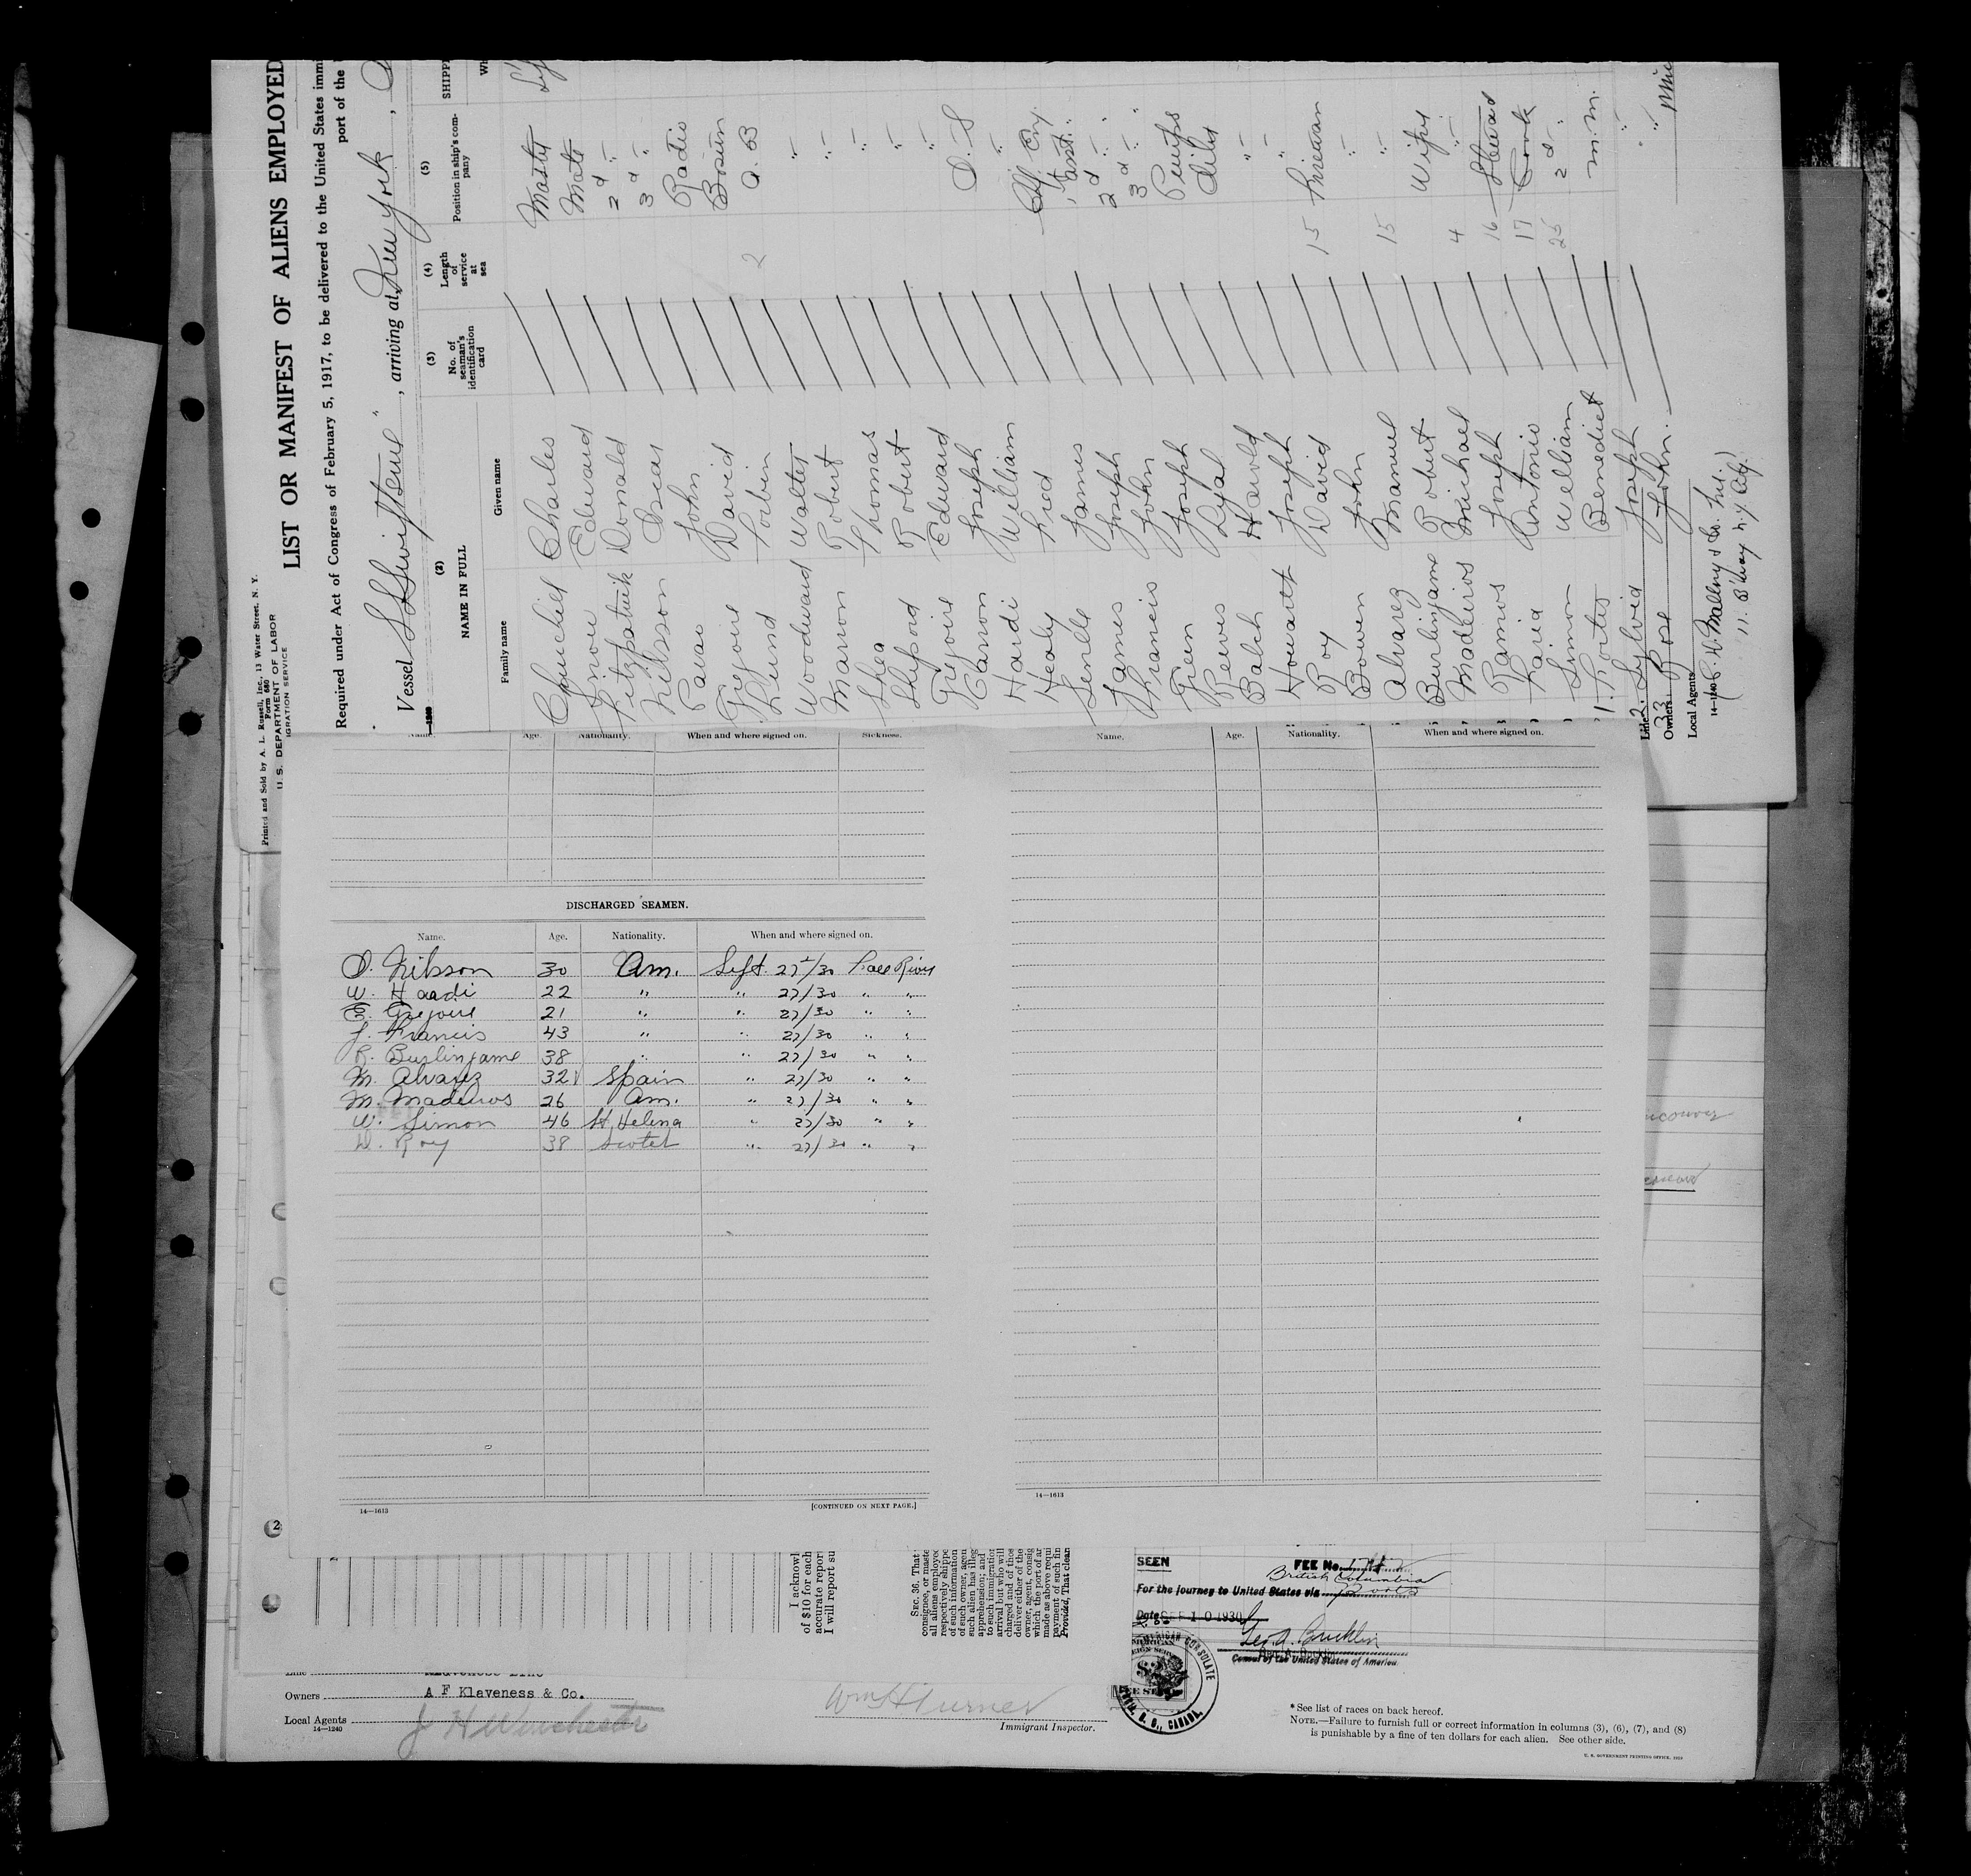 Printed and Sold by A. L. Russell, Inc., 13 Water Street. N. Y.
Form 680
U. S. DEPARTMENT OF LABOR
IGRATION SERVICE
LIST OR MANIFEST OF ALIENS EMPLOYED
Required under Act of Congress of February 5, 1917, to be delivered to the United States immi
port of the
Vessel SS Swiftsure", arriving at New York,
(2)
NAME IN FULL
Family name
Given name
(3)
No. of seaman's identification card
(4)
Length of service at sea
(5)
Position in ship's company
SHIPPE
Wh
Churchill Charles Master
Edward Mate
Fitzpatrick Donald 2d "
Nilsson Oscar 3d "
John Radio
Gregoire David Bosun
Lund 2 A. B
Woodward Walter "
Marron Robert "
Shea Thomas "
Robert "
Gregoire Edward "
Carron Joseph O. S
Hardi William "
Healy Fred Chf Eng
James 1st Asst.
James Joseph 2d "
Francis John 3d "
Joseph
Lyal Oiler
Balch Harold "
Howarth Joseph "
Roy David 15 Fireman
Bowen John "
Alvarez Manuel 15 "
Burlingame Robert Wiper
Madeiros Michael 4 "
Ramos Joseph 16 Steward
Faria Antonio 17 Cook
Simon William 25 2d "
1. Benedict M.M.
2. Sylvia Joseph "
33 Rose John "
Line
Owners
Local Agents
14—1240
(C. D. Mallory & Co. Inc.)
11. B'way N.Y. City.
Name. Age. Nationality. When and where signed on. Sickness.
DISCHARGED SEAMEN.
Name. Age. Nationality. When and where signed on.
O. Nilsson 30 Am. Sept. 27/30 Fall River
W. Hardi 22 " " 27/30 " "
E. Gregoire 21 " " 27/30 " "
J. Francis 43 " " 27/30 " "
R. Burlingame 38 " " 27/30 " "
M. Alvarez 32 Spain " 27/30 " "
M. Madeiros 26 Am. " 27/30 " "
W. Simon 46 St Helena " 27/30 " "
D. Roy 38 Scotch " 27/30 " "
14—1613
[CONTINUED ON NEXT PAGE.]
Name. Age. Nationality. When and where signed on.
14—1613
2
I acknowl
of $10 for each
accurate repor
I will report su
SEC. 36. That
consignee, or maste
all aliens employe
respectively shippe
of such information
of such owner, agen
such alien has illeg
apprehension; and
to such immigration
arrival but who will
charged and of thos
deliver either of the
owner, agent, consig
which the port of ar
made as above requi
payment of such fin
Provided, That clear
SEEN
FEE No.
British Columbia
For the journey to United States via Ports
Date SEP 10 1930
Geo. A. Bucklin
Consul of the United States of America.
Owners A F Klaveness & Co.
Local Agents J H Winchester
14—1240
Wm H Turner
Immigrant Inspector.
*See list of races on back hereof.
NOTE.—Failure to furnish full or correct information in columns (3), (6), (7), and (8)
is punishable by a fine of ten dollars for each alien. See other side.
U. S. GOVERNMENT PRINTING OFFICE